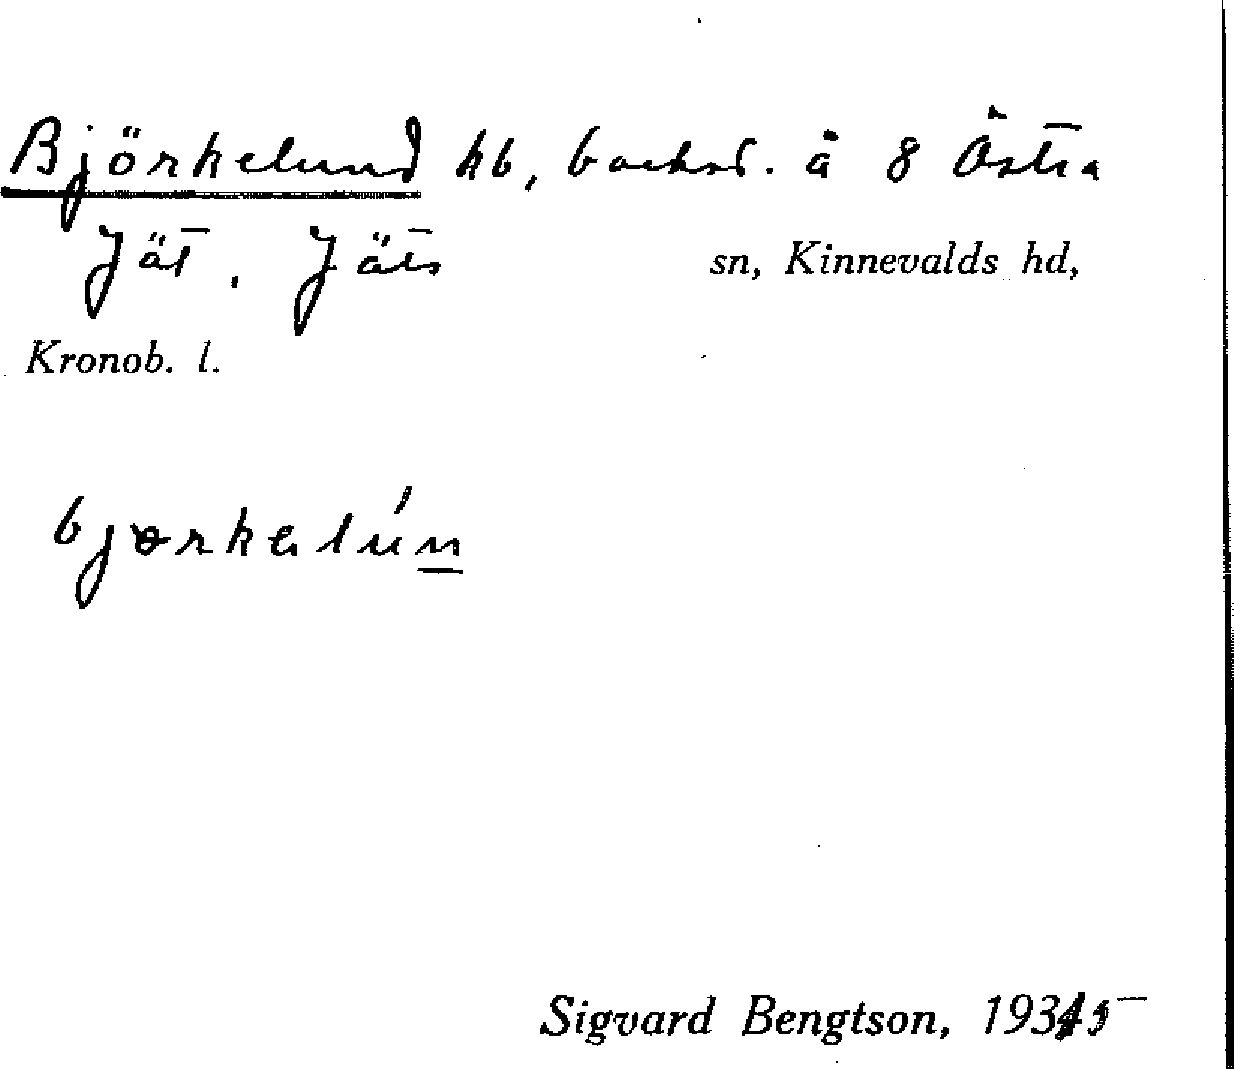 Björkelund hb, backst. å 8 Östra
Jät, Jäts sn, Kinnevalds hd,
Kronob. l.
bjørkəlún
Sigvard Bengtson, 1935